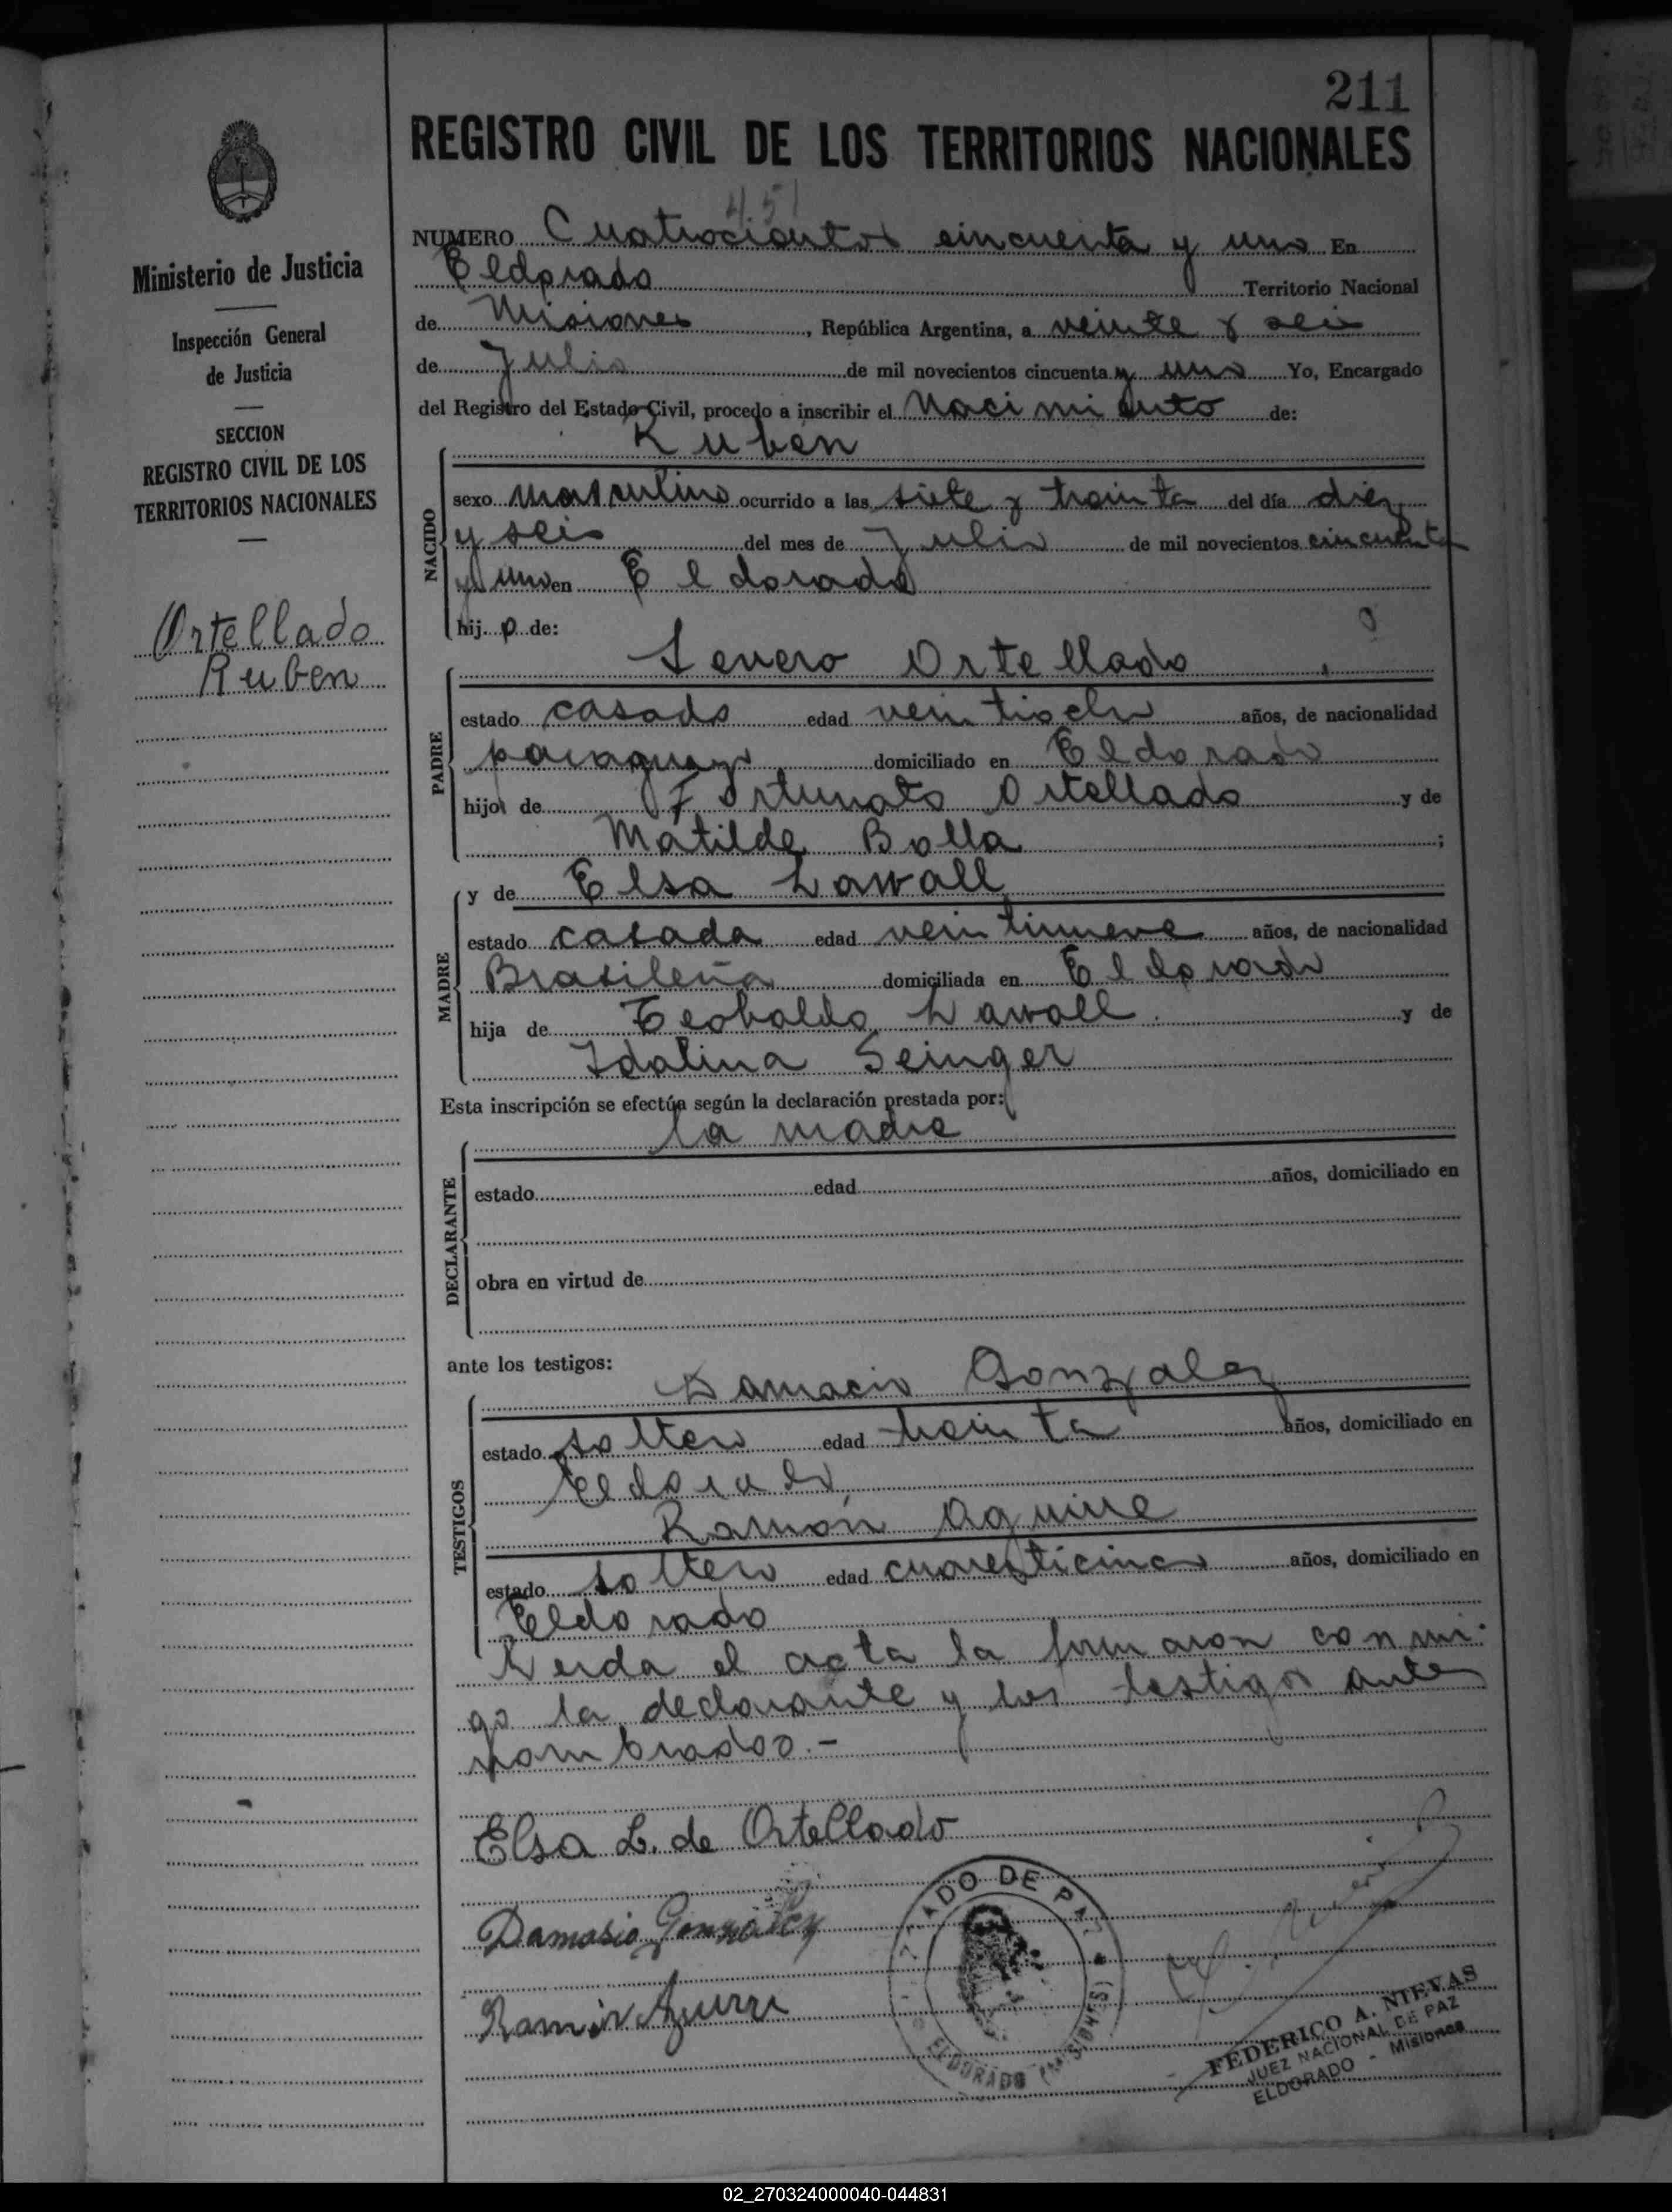 211
REGISTRO CIVIL DE LOS TERRITORIOS NACIONALES
Ministerio de Justicia
Inspección General
de Justicia
SECCION
REGISTRO CIVIL DE LOS
TERRITORIOS NACIONALES
Ortellado
Ruben
451
NUMERO Cuatrocientos cincuenta y uno En
Eldorado Territorio Nacional
de Misiones, República Argentina, a veinte y seis
de Julio de mil novecientos cincuenta y uno Yo, Encargado
del Registro del Estado Civil, procedo a inscribir el Nacimiento de:
Rubén
NACIDO
sexo masculino ocurrido a las siete y treinta del día diez
y seis del mes de Julio de mil novecientos cincuenta
y uno en Eldorado
hijo de:
PADRE
Severo Ortellado
estado casado edad veintiocho años, de nacionalidad
paraguayo domiciliado en Eldorado
hijo de Fortunato Ortellado y de
Matilde Bolla;
MADRE
y de Elsa Lawall
estado casada edad veintinueve años, de nacionalidad
Brasileña domiciliada en Eldorado
hija de Teobaldo Lawall y de
Idalina Seinger
Esta inscripción se efectúa según la declaración prestada por:
la madre
DECLARANTE
estado edad años, domiciliado en
obra en virtud de
ante los testigos:
TESTIGOS
Damacio Gonzalez
estado soltero edad treinta años, domiciliado en
Eldorado
Ramón Aguirre
estado soltero edad cuarenticinco años, domiciliado en
Eldorado
Leida el acta la firmaron conmi-
go la declarante y los testigos antes
nombrados.-
Elsa L. de Ortellado
Damasio Gonzalez
Ramón
JUZGADO DE PAZ
ELDORADO (MISIONES)
FEDERICO A. NIEVAS
JUEZ NACIONAL DE PAZ
ELDORADO - Misiones
02_270324000040-044831